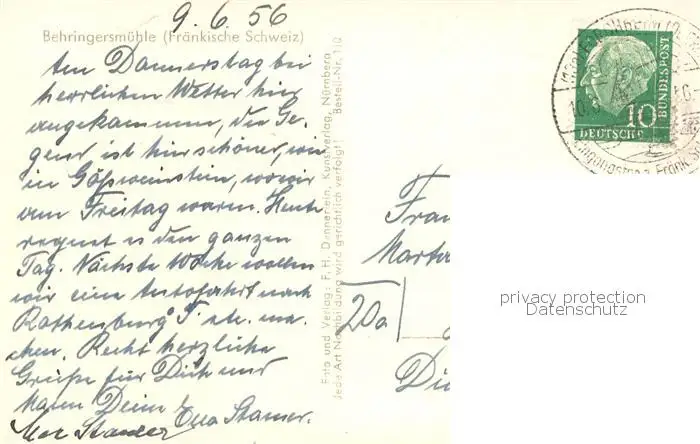 9.6.56
Behringersmühle (Fränkische Schweiz)
Am Donnerstag bei
herrlichem Wetter hier
angekommen, die Ge-
gend ist hier schöner, wie
in Gößweinstein, wo wir
am Freitag waren. Heute
regnet es den ganzen
Tag. Nächste Woche wollen
wir eine Autofahrt nach
Rothenburg T. etc. ma-
chen. Recht herzliche
Grüße für Dich und
Mann Deine
Foto und Verlag: F. H. Dinnerlein, Kunstverlag, Nürnberg
Jede Art Nachbildung wird gerichtlich verfolgt! Bestell-Nr. 110
10
DEUTSCHE
BUNDESPOST
Frau
Marta
20a
privacy protection
Datenschutz